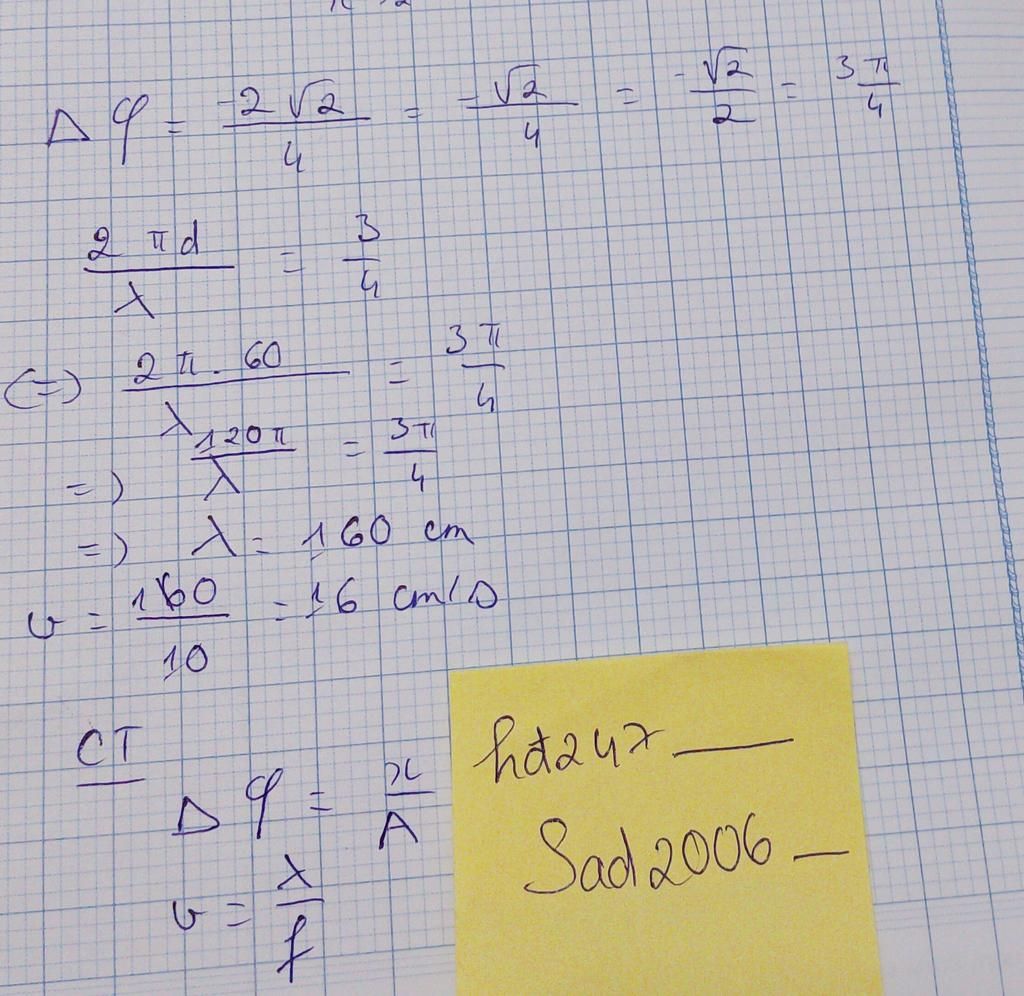 Δφ = -2√2/4 = -√2/4 = -√2/2 = 3π/4
2πd/λ = 3/4
(=) 2π.60/λ = 3π/4
=) 120π/λ = 3π/4
=) λ = 160 cm
v = 160/10 = 16 cm/s
CT
Δφ = x/A
v = λ/f
hđ247
Sad2006